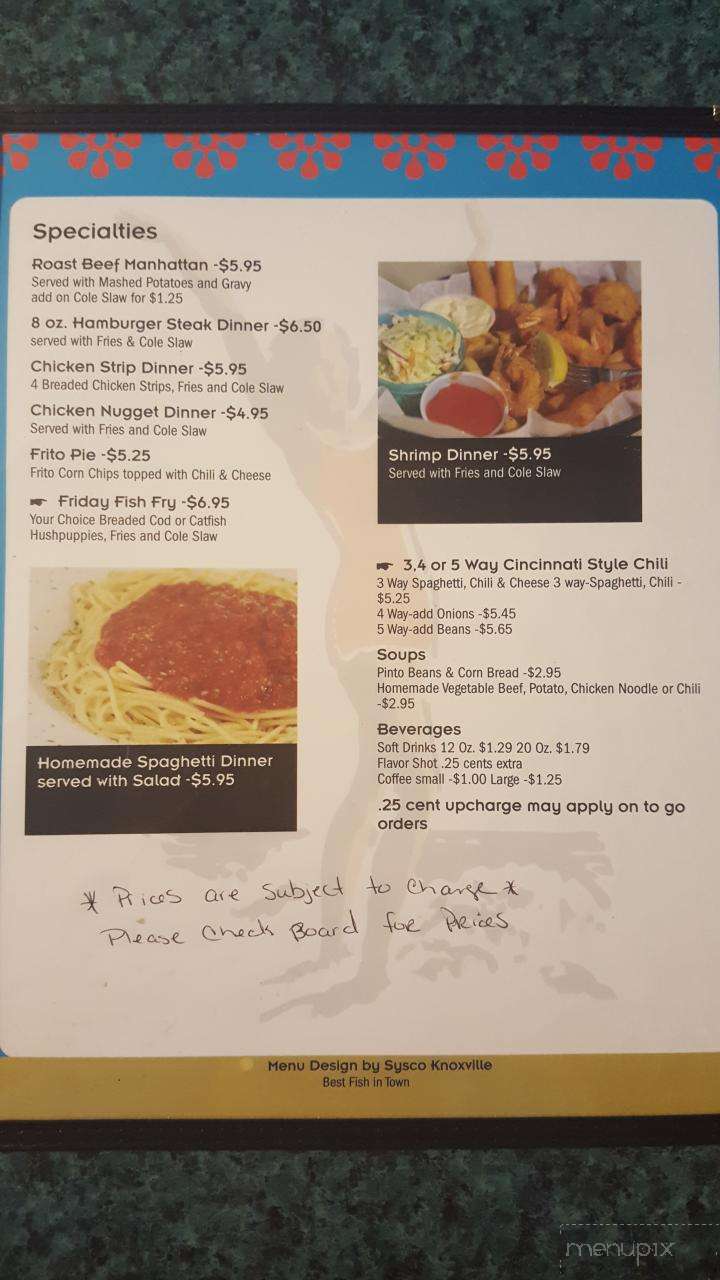 Specialties
Roast Beef Manhattan -$5.95
Served with Mashed Potatoes and Gravy
add on Cole Slaw for $1.25
8 oz. Hamburger Steak Dinner -$6.50
served with Fries & Cole Slaw
Chicken Strip Dinner -$5.95
4 Breaded Chicken Strips, Fries and Cole Slaw
Chicken Nugget Dinner -$4.95
Served with Fries and Cole Slaw
Frito Pie -$5.25
Frito Corn Chips topped with Chili & Cheese
Friday Fish Fry -$6.95
Your Choice Breaded Cod or Catfish
Hushpuppies, Fries and Cole Slaw
Homemade Spaghetti Dinner
served with Salad -$5.95
Shrimp Dinner -$5.95
Served with Fries and Cole Slaw
3,4 or 5 Way Cincinnati Style Chili
3 Way Spaghetti, Chili & Cheese 3 way-Spaghetti, Chili -
$5.25
4 Way-add Onions -$5.45
5 Way-add Beans -$5.65
Soups
Pinto Beans & Corn Bread -$2.95
Homemade Vegetable Beef, Potato, Chicken Noodle or Chili
-$2.95
Beverages
Soft Drinks 12 Oz. $1.29 20 Oz. $1.79
Flavor Shot .25 cents extra
Coffee small -$1.00 Large -$1.25
.25 cent upcharge may apply on to go
orders
* Prices are Subject to Change *
Please Check Board for Prices
Menu Design by Sysco Knoxville
Best Fish in Town
menupix